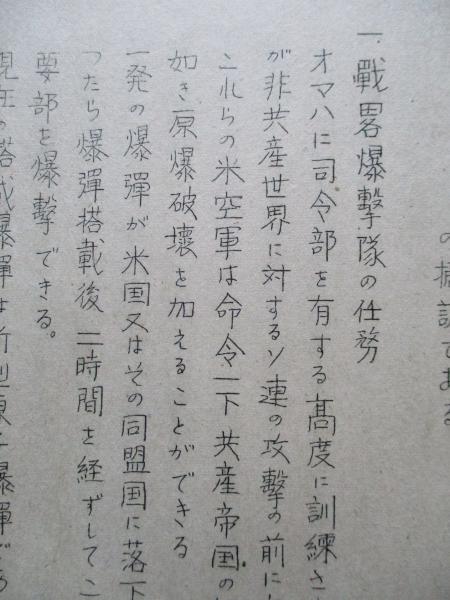 の摘訳である
一、戰畧爆撃隊の任務
オマハに司令部を有する髙度に訓練さ
が非共産世界に対するソ連の攻撃の前に
これらの米空軍は命令一下共産帝国の
如き原爆破壊を加えることができる
一発の爆彈が米国又はその同盟国に落下
つたら爆彈搭載後二時間を経ずしてこ
要部を爆撃できる。
現在の搭載爆彈は新型原子爆彈であ